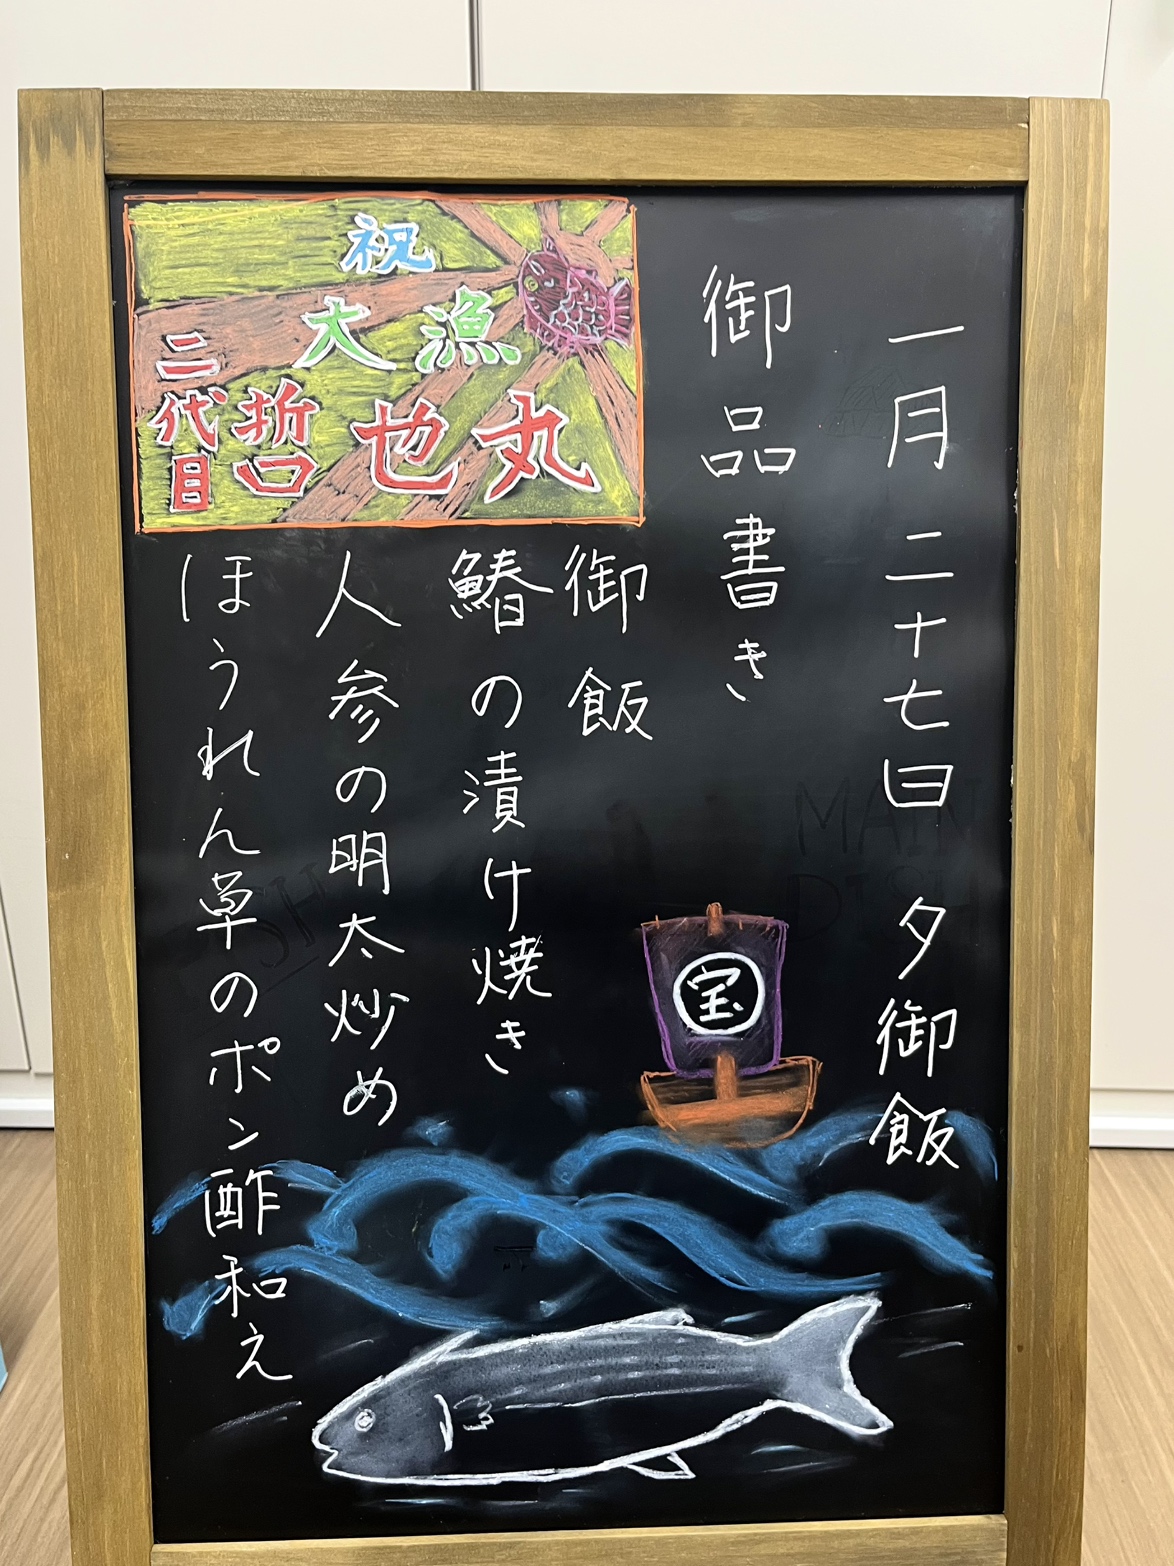 一月二十七日 夕御飯
御品書き
祝
大漁
二代目哲也丸
御飯
鰆の漬け焼き
人参の明太炒め
ほうれん草のポン酢和え
宝